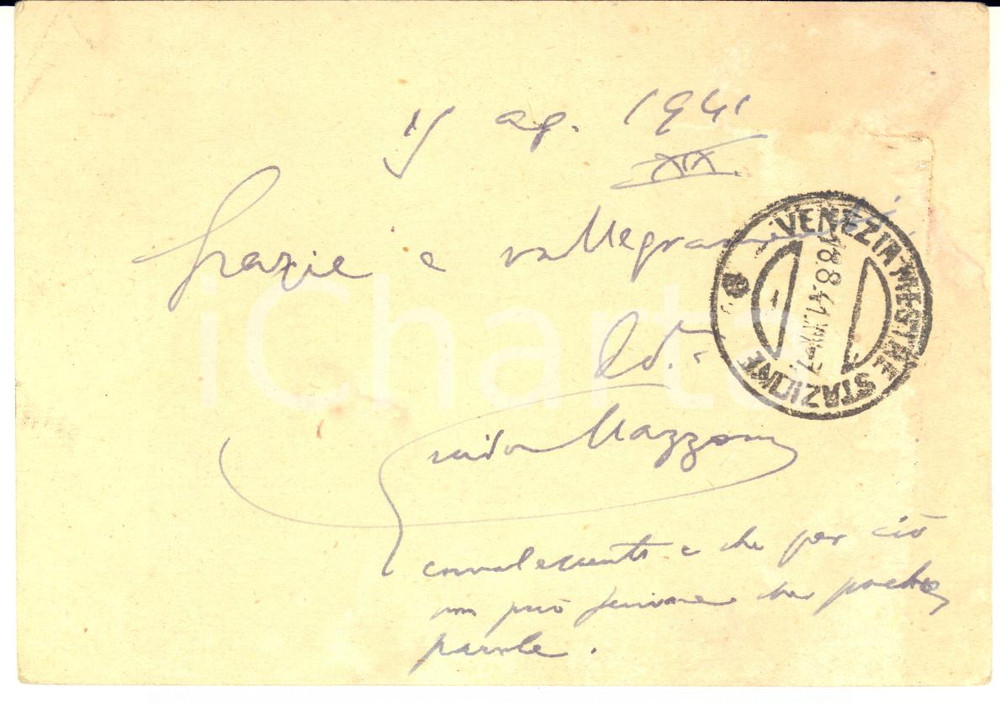 ag. 1941
XIX.
Grazie e rallegramenti
Guido Mazzoni
convalescente e che per ciò
non può scrivere che poche
parole.
VENEZIA MESTRE STAZIONE
18.8.41.XIX-7
iCharta